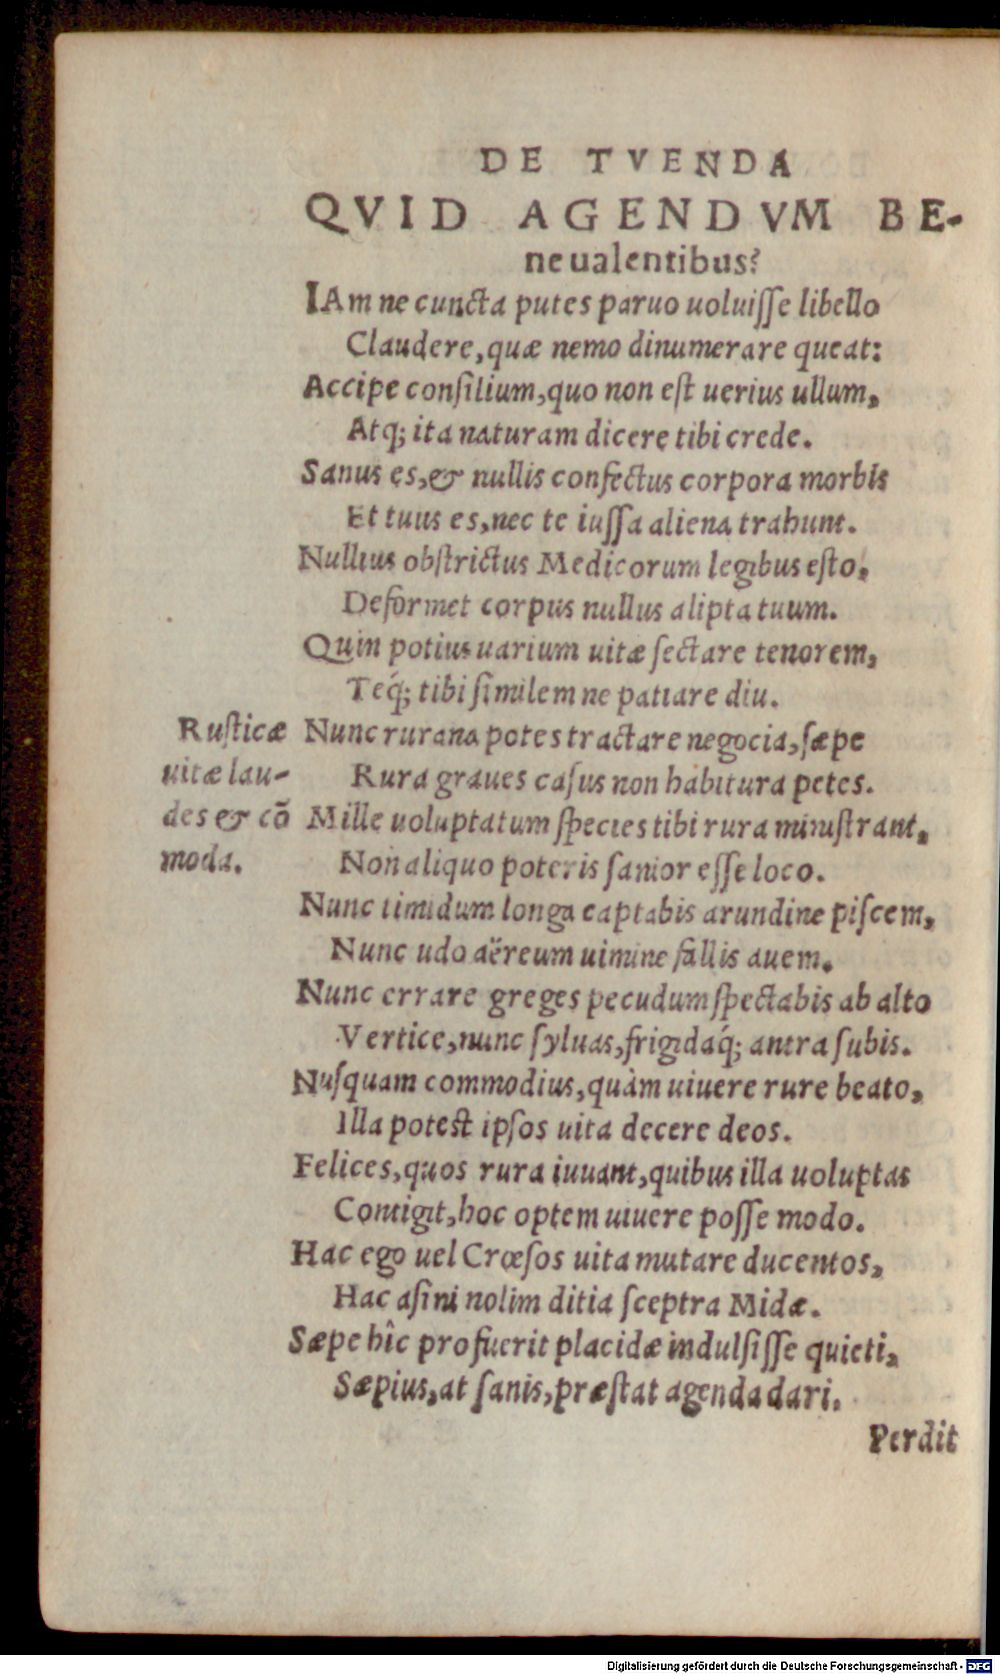 DE TVENDA
QVID AGENDVM BE-
neualentibus?
IAm ne cuncta putes paruo uoluiſſe libello
Claudere, quæ nemo dinumerare queat:
Accipe conſilium, quo non eſt uerius ullum,
Atq́; ita naturam dicere tibi crede.
Sanus es, & nullis confectus corpora morbis
Et tuus es, nec te iuſſa aliena trahunt.
Nullius obſtrictus Medicorum legibus eſto,
Deformet corpus nullus alipta tuum.
Quin potius uarium uitæ ſectare tenorem,
Teq́; tibi ſimilem ne patiare diu.
Ruſticæ
uitæ lau-
des & cō
moda.
Nunc rurana potes tractare negocia, ſæpe
Rura graues caſus non habitura petes.
Mille uoluptatum ſpecies tibi rura miniſtrant,
Non aliquo poteris ſanior eſſe loco.
Nunc timidum longa captabis arundine piſcem,
Nunc udo aëreum uimine fallis auem.
Nunc errare greges pecudum ſpectabis ab alto
Vertice, nunc ſyluas, frigidaq́; antra ſubis.
Nuſquam commodius, quàm uiuere rure beato,
Illa potest ipſos uita decere deos.
Felices, quos rura iuuant, quibus illa uoluptas
Contigit, hoc optem uiuere poſſe modo.
Hac ego uel Crœſos uita mutare ducentos,
Hac aſini nolim ditia ſceptra Midæ.
Sæpe hîc profuerit placidæ indulſiſſe quieti,
Sæpius, at ſanis, præſtat agenda dari.
Perdit
Digitalisierung gefördert durch die Deutsche Forschungsgemeinschaft - DFG